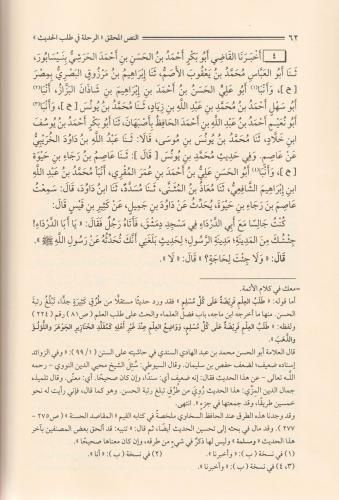 ٦٢ النص المحقق « الرحلة في طلب الحديث »
٤ أَخْبَرَنَا القَاضِي أَبُو بَكْرٍ أَحْمَدُ بْنُ الحَسَنِ بْنِ أَحْمَدَ الحَرَشِيُّ بِنَيْسَابُورَ،
ثَنَا أَبُو العَبَّاسِ مُحَمَّدُ بْنُ يَعْقُوبَ الأَصَمُّ، ثَنَا إِبْرَاهِيمُ بْنُ مَرْزُوقٍ البَصْرِيُّ بِمِصْرَ
[ح]، وَأَنْبَا(١) أَبُو عَلِيٍّ الحَسَنُ بْنُ أَحْمَدَ بْنِ إِبْرَاهِيمَ بْنِ شَاذَانَ البَزَّازُ، أَنْبَا(٢)
أَبُو سَهْلٍ أَحْمَدُ بْنُ مُحَمَّدِ بْنِ عَبْدِ اللهِ بْنِ زِيَادٍ، ثَنَا مُحَمَّدُ بْنُ يُونُسَ [ح]، وَأَنْبَا(٣)
أَبُو نُعَيْمٍ أَحْمَدُ بْنُ عَبْدِ اللهِ بْنِ أَحْمَدَ الحَافِظُ بِأَصْبَهَانَ، ثَنَا أَبُو بَكْرٍ أَحْمَدُ بْنُ يُوسُفَ
ابْنِ خَلَّادٍ، ثَنَا مُحَمَّدُ بْنُ يُونُسَ بْنِ مُوسَى، قَالَا: ثَنَا عَبْدُ اللهِ بْنُ دَاوُدَ الخُرَيْبِيُّ
عَنْ عَاصِمٍ. وَفِي حَدِيثِ مُحَمَّدِ بْنِ يُونُسَ [قَالَ]: ثَنَا عَاصِمُ بْنُ رَجَاءِ بْنِ حَيْوَةَ
[ح]، وَأَنْبَا(٤) أَبُو الحَسَنِ عَلِيُّ بْنُ أَحْمَدَ بْنِ عُمَرَ المُقْرِي، أَنْبَا مُحَمَّدُ بْنُ عَبْدِ اللهِ
ابْنِ إِبْرَاهِيمَ الشَّافِعِيُّ، ثَنَا مُعَاذُ بْنُ المُثَنَّى، ثَنَا مُسَدَّدٌ، ثَنَا ابْنُ دَاوُدَ، قَالَ: سَمِعْتُ
عَاصِمَ بْنَ رَجَاءِ بْنِ حَيْوَةَ، يُحَدِّثُ عَنْ دَاوُدَ بْنِ جَمِيلٍ، عَنْ كَثِيرِ بْنِ قَيْسٍ قَالَ:
كُنْتُ جَالِسًا مَعَ أَبِي الدَّرْدَاءِ فِي مَسْجِدِ دِمَشْقَ، فَأَتَاهُ رَجُلٌ فَقَالَ: «يَا أَبَا الدَّرْدَاءِ!
جِئْتُكَ مِنَ المَدِينَةِ؛ مَدِينَةِ الرَّسُولِ؛ لِحَدِيثٍ بَلَغَنِي أَنَّكَ تُحَدِّثُهُ عَنْ رَسُولِ اللهِ ﷺ».
قَالَ: «وَلَا جِئْتَ لِحَاجَةٍ؟» قَالَ: «لَا».
=معك في كلام الأئمة.
أما قوله: « طَلَبُ العِلْمِ فَرِيضَةٌ عَلَى كُلِّ مُسْلِمٍ » فقد ورد حديثًا مستقلًا من طُرُقٍ كثيرةٍ جدًّا، تبلغُ رتبةَ
الحسن، منها ما أخرجه ابن ماجه، باب فضل العلماء والحث على طلب العلم (ص٨١) رقم (٢٢٤)
ولفظه: « طَلَبُ العِلْمِ فَرِيضَةٌ عَلَى كُلِّ مُسْلِمٍ، وَوَاضِعُ العِلْمِ عِنْدَ غَيْرِ أَهْلِهِ كَمُقَلِّدِ الخَنَازِيرِ الجَوْهَرَ وَاللُّؤْلُؤَ
وَالذَّهَبَ ».
قال العلامة أبو الحسن محمد بن عبد الهادي السندي في حاشيته على السنن (١/ ٩٩): « وفي الزوائد
إسناده ضعيف؛ لضعف حفص بن سليمان. وقال السيوطي: سُئِلَ الشيخُ محيي الدين النووي - رحمه
اللَّه تعالى - عن هذا الحديث فقال: إنه ضعيف أي: سندًا، وإن كان صحيحًا. أي: معنًى. وقال تلميذه
جمال الدين المزي: هذا الحديث رُوِيَ من طُرُقٍ تبلغ رتبة الحسن. وهو كما قال، فإني رأيت له نحو
خمسين طريقًا، وقد جمعتها في جزء ». انتهى.
وقد وجدنا هذه الطرق عند الحافظ السخاوي ملخصة في كتابه القيم « المقاصد الحسنة » (ص٢٧٥-
٢٧٧). وقد مال في بحثه إلى تحسين الحديث أيضًا، ثم قال: « تنبيه: قد ألحق بعض المصنفين بآخر
هذا الحديث « ومسلمة » وليس لها ذكرٌ في شيءٍ من طرقه، وإن كان معناها صحيحًا ».
(١) في نسخة (ب): « وأخبرنا ». (٢) في نسخة (ب): « أنا ».
(٣، ٤) في نسخة (ب): « وأخبرنا ».